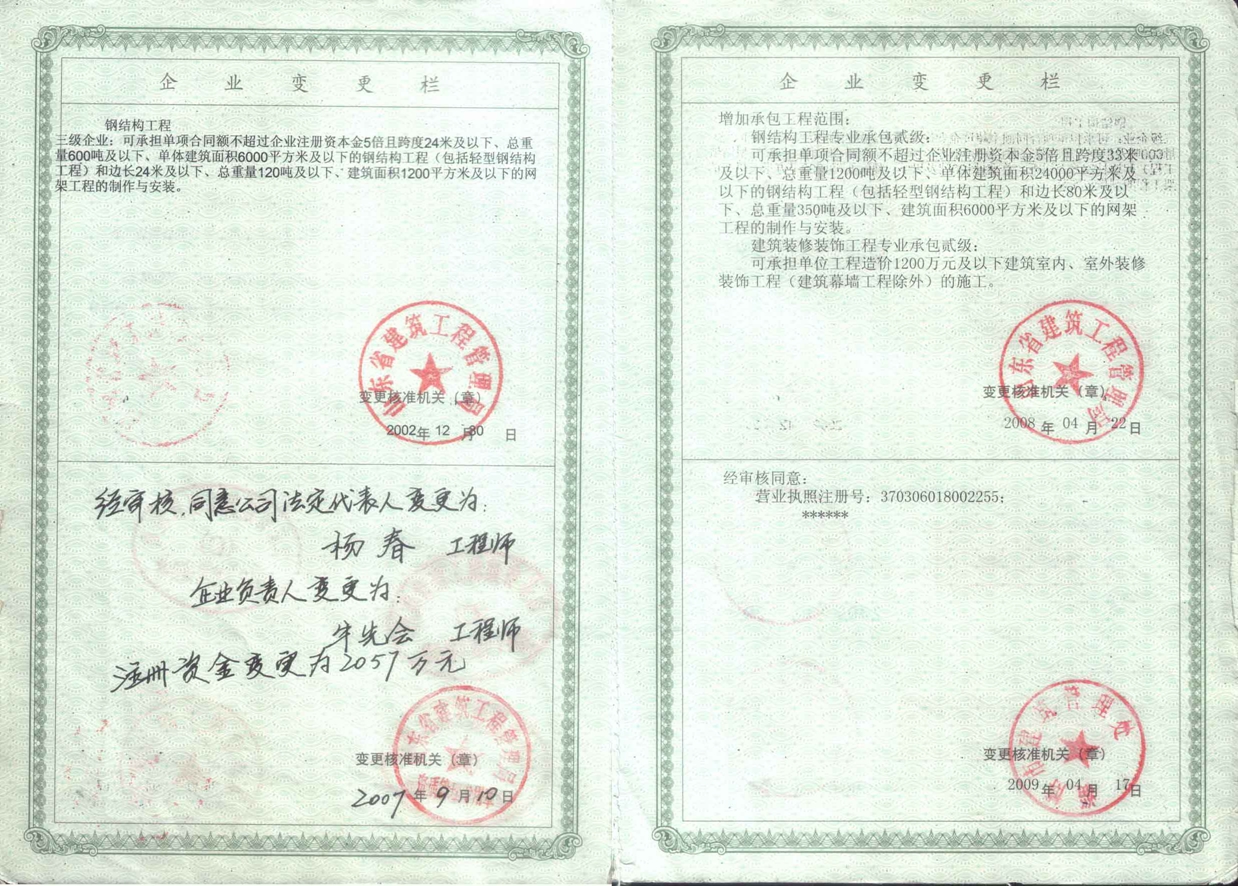 企业变更栏
钢结构工程
三级企业：可承担单项合同额不超过企业注册资本金5倍且跨度24米及以下、总重
量600吨及以下、单体建筑面积6000平方米及以下的钢结构工程（包括轻型钢结构
工程）和边长24米及以下、总重量120吨及以下、建筑面积1200平方米及以下的网
架工程的制作与安装。
山东省建筑工程管理局
变更核准机关（章）
2002年 12 月30 日
经审核,同意公司法定代表人变更为:
杨春 工程师
企业负责人变更为:
牛先会 工程师
注册资金变更为2057万元
东省建筑工程管理局
变更核准机关（章）
2007年9月10日
企业变更栏
增加承包工程范围：
钢结构工程专业承包贰级：
可承担单项合同额不超过企业注册资本金5倍且跨度33米
及以下、总重量1200吨及以下、单体建筑面积24000平方米及
以下的钢结构工程（包括轻型钢结构工程）和边长80米及以
下、总重量350吨及以下、建筑面积6000平方米及以下的网架
工程的制作与安装。
建筑装修装饰工程专业承包贰级：
可承担单位工程造价1200万元及以下建筑室内、室外装修
装饰工程（建筑幕墙工程除外）的施工。
山东省建筑工程管理局
变更核准机关（章）
2008年 04 月 22日
经审核同意：
营业执照注册号：370306018002255；
******
市建筑管理处
变更核准机关（章）
2009年 04 月 17日